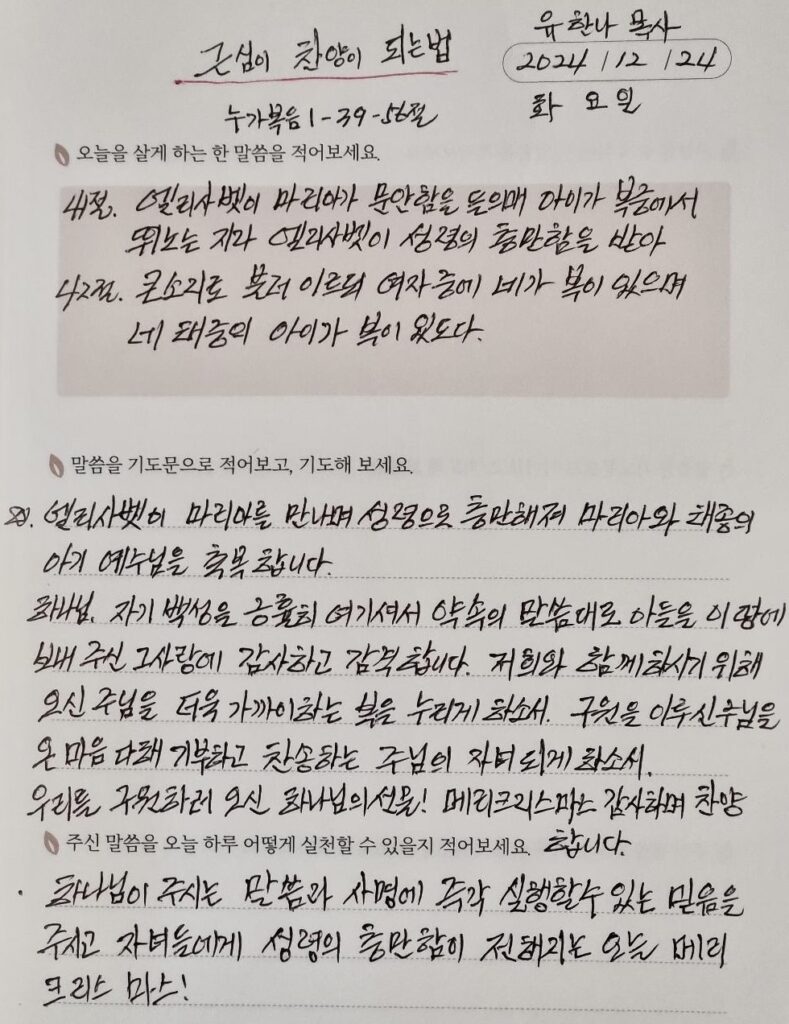 유한나 목사
근심이 찬양이 되는법
2024 / 12 / 24
화 요일
누가복음 1-39-56절
오늘을 살게 하는 한 말씀을 적어보세요.
41절. 엘리사벳이 마리아가 문안함을 들으매 아이가 복중에서
뛰노는 지라 엘리사벳이 성령의 충만함을 받아
42절. 큰소리로 불러 이르되 여자 중에 네가 복이 있으며
네 태중의 아이가 복이 있도다.
말씀을 기도문으로 적어보고, 기도해 보세요.
엘리사벳이 마리아를 만나며 성령으로 충만해져 마리아와 태중의
아기 예수님을 축복 합니다.
하나님. 자기 백성을 긍휼히 여기셔서 약속의 말씀대로 아들을 이 땅에
보내 주신 그사랑에 감사하고 감격 합니다. 저희와 함께하시기 위해
오신 주님을 더욱 가까이하는 복을 누리게 하소서. 구원을 이루신주님을
온 마음 다해 기뻐하고 찬송하는 주님의 자녀 되게 하소서.
우리를 구원하러 오신 하나님의선물! 메리크리스마스 감사하며 찬양
합니다.
주신 말씀을 오늘 하루 어떻게 실천할 수 있을지 적어보세요.
· 하나님이 주시는 말씀과 사명에 즉각 실행할수 있는 믿음을
주시고 자녀들에게 성령의 충만함이 전해지는 오늘 메리
크리스 마스!